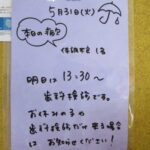 5月31日(火)
本日の給食
明日は 13:30〜
歯科検診です。
お休みの子や
歯科検診だけ来る場合
は お知らせください!